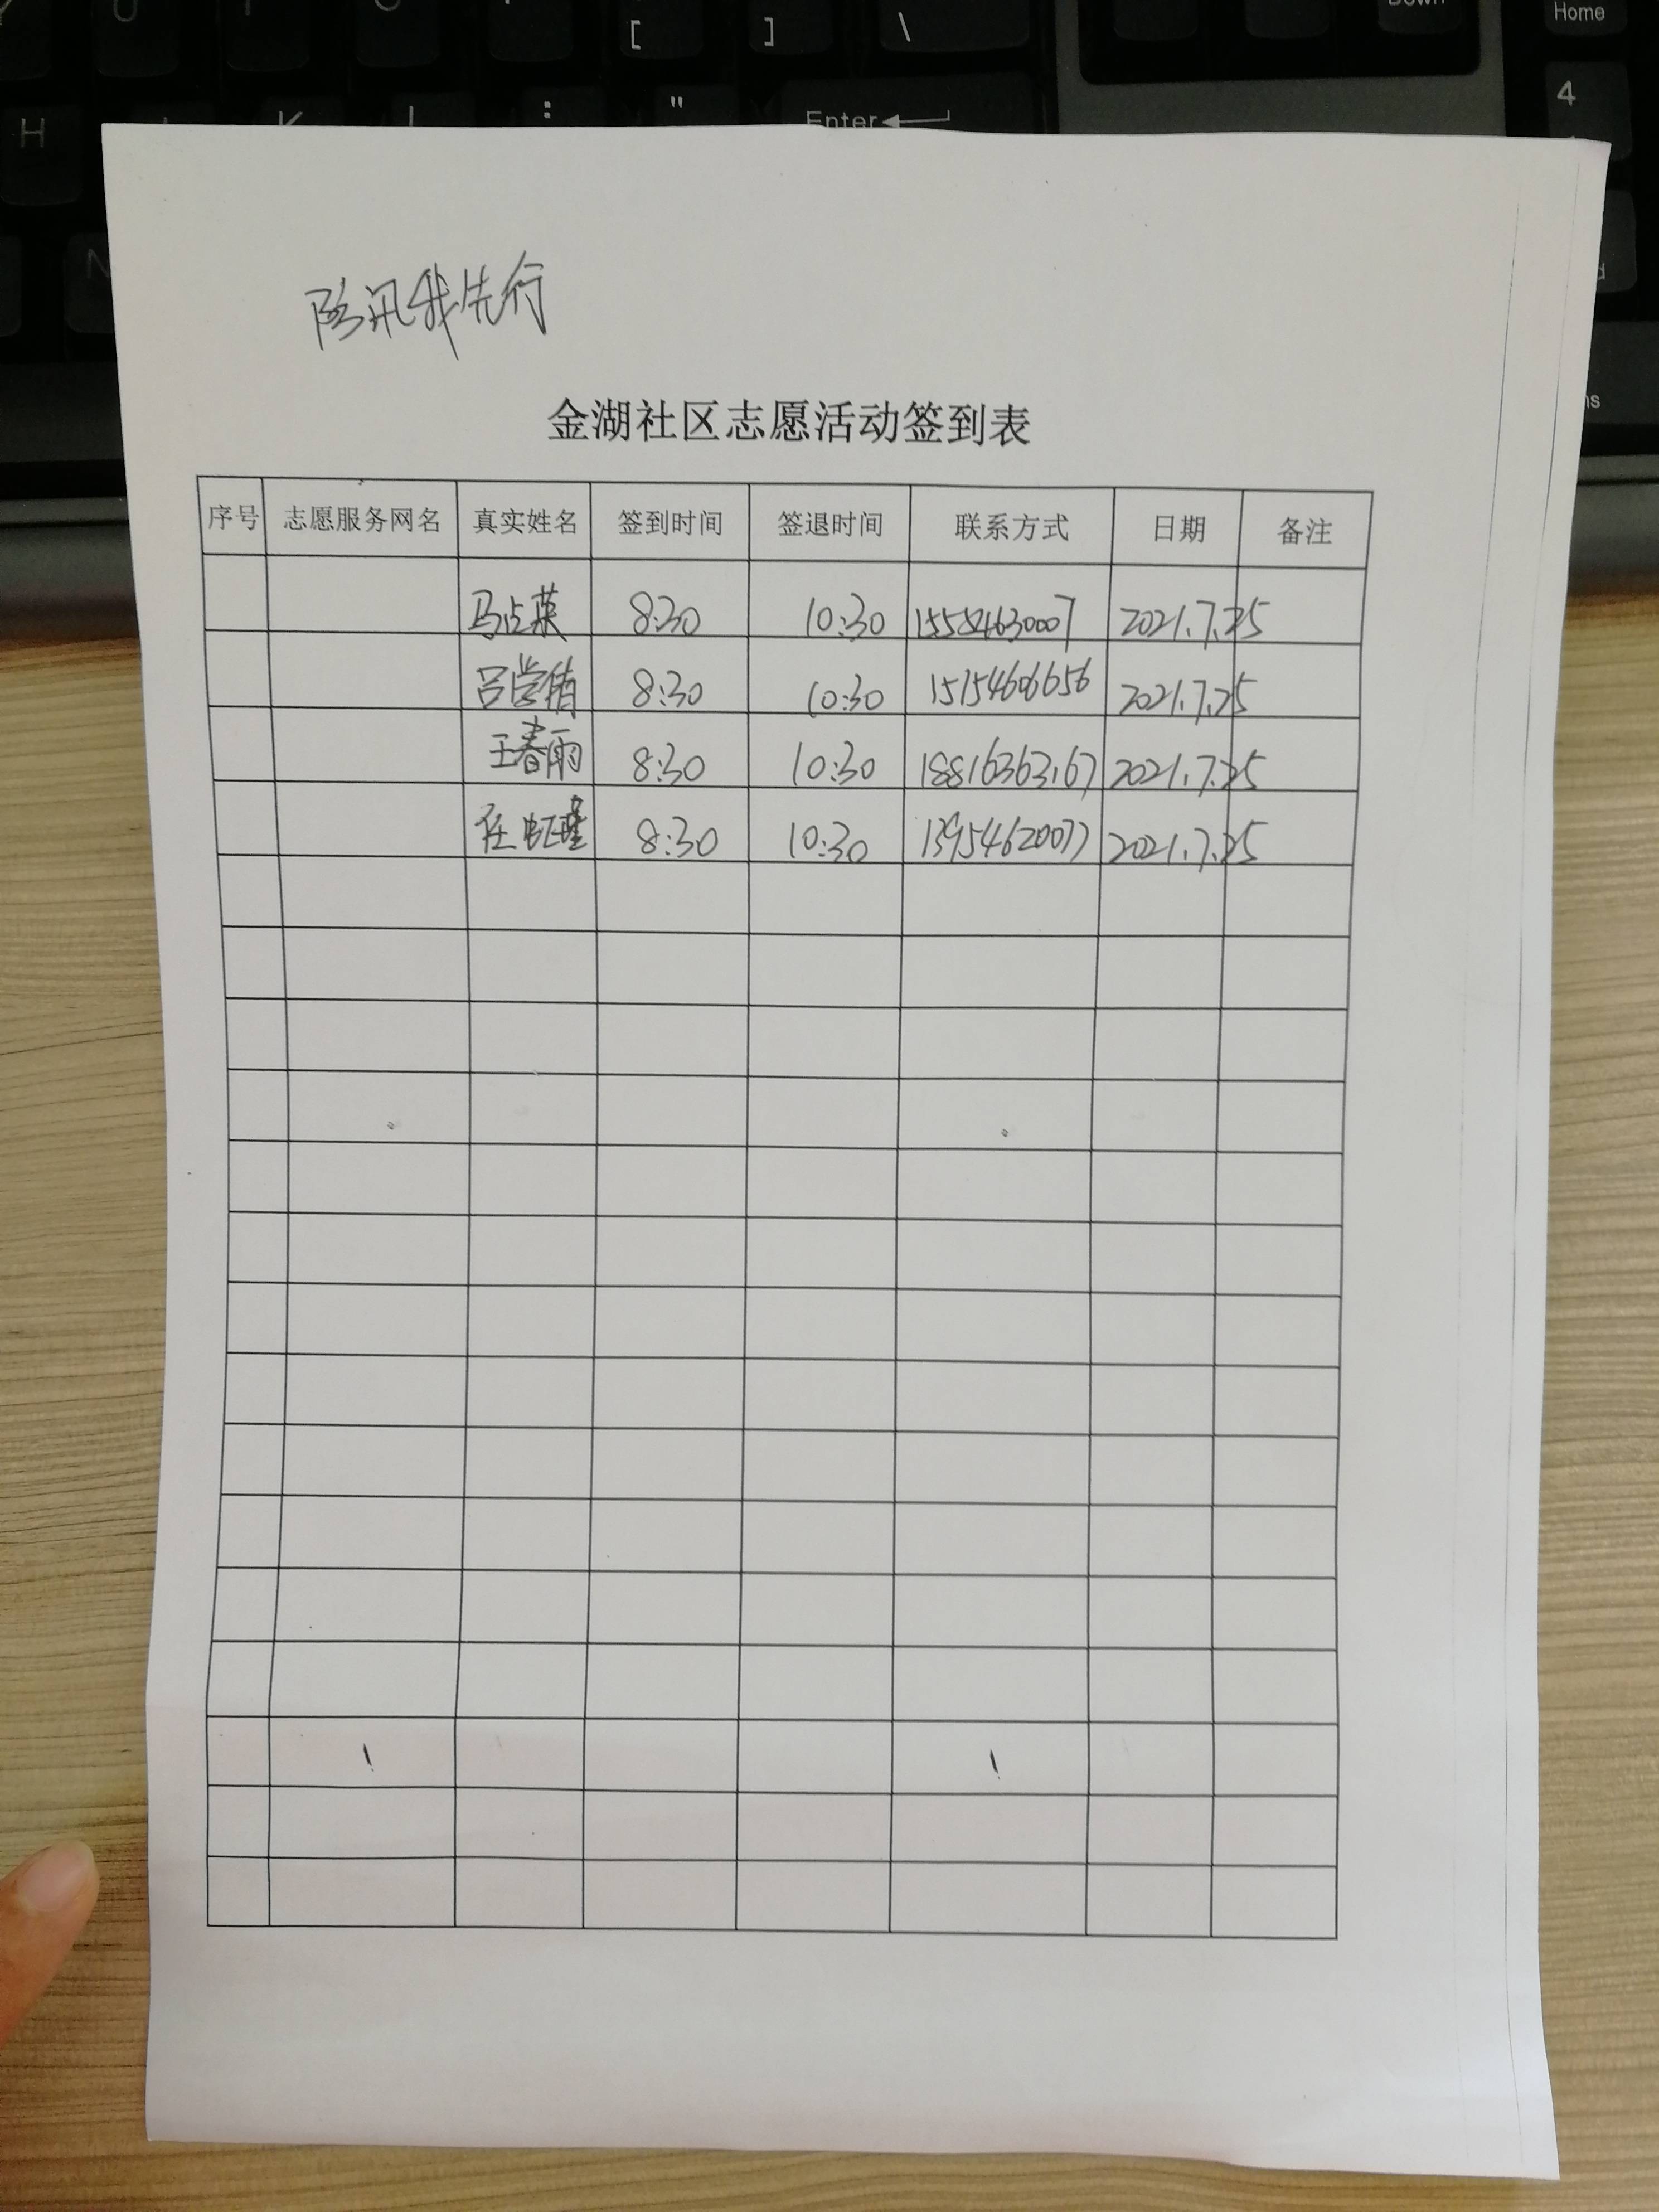 Home
[ ] \
H K L : " Enter 4
N
防汛我先行
金湖社区志愿活动签到表
序号 志愿服务网名 真实姓名 签到时间 签退时间 联系方式 日期 备注
马占英 8:30 10:30 15554630007 2021.7.25
吕学倩 8:30 10:30 15154606656 2021.7.25
王春雨 8:30 10:30 18816363167 2021.7.25
任 8:30 10:30 13954620077 2021.7.25